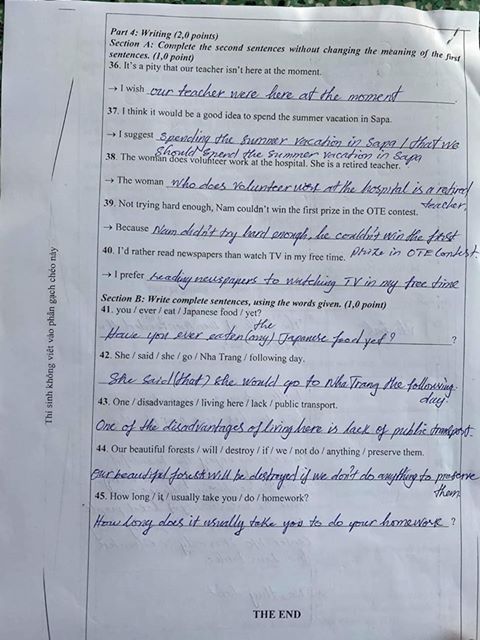 Part 4: Writing (2,0 points)
Section A: Complete the second sentences without changing the meaning of the first
sentences. (1,0 point)
36. It's a pity that our teacher isn't here at the moment.
→ I wish our teacher were here at the moment.
37. I think it would be a good idea to spend the summer vacation in Sapa.
→ I suggest spending the summer vacation in Sapa / that we
should spend the summer vacation in Sapa
38. The woman does volunteer work at the hospital. She is a retired teacher.
→ The woman who does volunteer work at the hospital is a retired
teacher.
39. Not trying hard enough, Nam couldn't win the first prize in the OTE contest.
→ Because Nam didn't try hard enough, he couldn't win the first
prize in OTE contest.
40. I'd rather read newspapers than watch TV in my free time.
→ I prefer reading newspapers to watching TV in my free time
Section B: Write complete sentences, using the words given. (1,0 point)
41. you / ever / eat / Japanese food / yet?
the
Have you ever eaten (any) Japanese food yet? ?
42. She / said / she / go / Nha Trang / following day.
She said (that) she would go to Nha Trang the following
day
43. One / disadvantages / living here / lack / public transport.
One of the disadvantages of living here is lack of public transport.
44. Our beautiful forests / will / destroy / if / we / not do / anything / preserve them.
Our beautiful forests will be destroyed if we don't do anything to preserve
them
45. How long / it / usually take you / do / homework?
How long does it usually take you to do your homework ?
THE END
Thí sinh không viết vào phần gạch chéo này